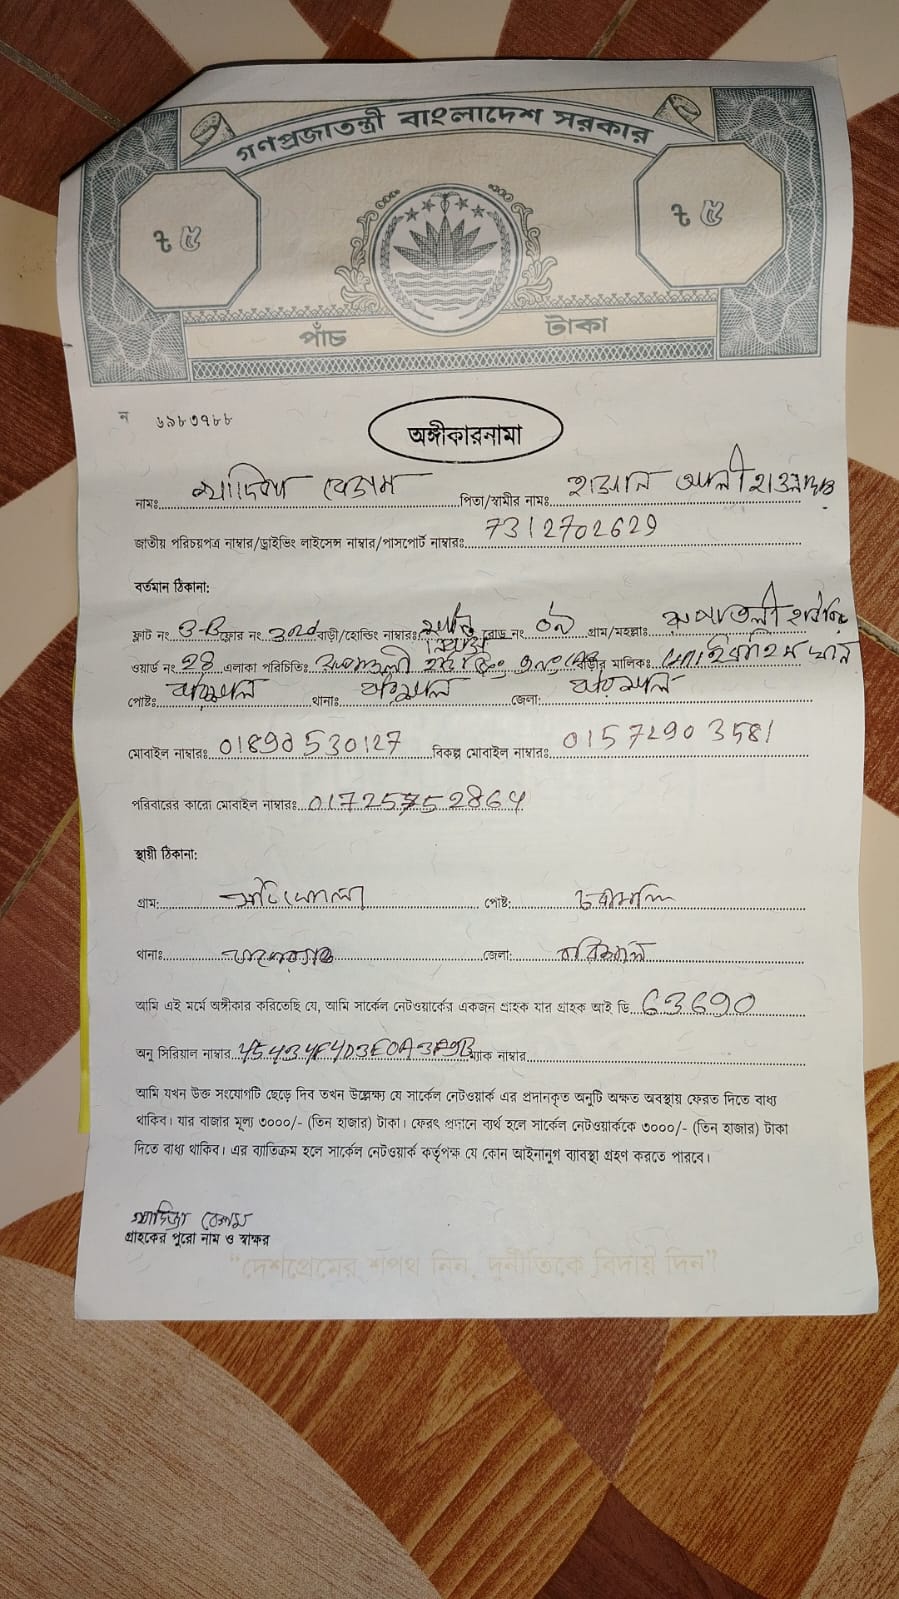 গণপ্রজাতন্ত্রী বাংলাদেশ সরকার
৳ ৫ ৳ ৫
পাঁচ টাকা
ন ৬৯৮৩৭৮৮
অঙ্গীকারনামা
নামঃ বেগম পিতা/স্বামীর নামঃ আলী
জাতীয় পরিচয়পত্র নাম্বার/ড্রাইভিং লাইসেন্স নাম্বার/পাসপোর্ট নাম্বারঃ 7312702629
বর্তমান ঠিকানা:
ফ্লাট নং 3-B ফ্লোর নং 3rd বাড়ী/হোল্ডিং নাম্বারঃ রোড নং ০৯ গ্রাম/মহল্লাঃ রুপাতলী হাউজিং
ওয়ার্ড নং 24 এলাকা পরিচিতিঃ রুপাতলী হাউজিং বাড়ীর মালিক: খান
পোষ্টঃ বরিশাল থানাঃ বরিশাল জেলা: বরিশাল
মোবাইল নাম্বারঃ 01890530127 বিকল্প মোবাইল নাম্বারঃ 01572903581
পরিবারের কারো মোবাইল নাম্বারঃ 01725752864
স্থায়ী ঠিকানা:
গ্রাম: পোষ্ট:
থানাঃ বাকেরগঞ্জ জেলা: বরিশাল
আমি এই মর্মে অঙ্গীকার করিতেছি যে, আমি সার্কেল নেটওয়ার্কের একজন গ্রাহক যার গ্রাহক আই ডি 63690
অনু সিরিয়াল নাম্বার 45434F4D3E0A3A9B ম্যাক নাম্বার
আমি যখন উক্ত সংযোগটি ছেড়ে দিব তখন উল্লেক্ষ্য যে সার্কেল নেটওয়ার্ক এর প্রদানকৃত অনুটি অক্ষত অবস্থায় ফেরত দিতে বাধ্য
থাকিব। যার বাজার মূল্য ৩০০০/- (তিন হাজার) টাকা। ফেরৎ প্রদানে ব্যর্থ হলে সার্কেল নেটওয়ার্ককে ৩০০০/- (তিন হাজার) টাকা
দিতে বাধ্য থাকিব। এর ব্যতিক্রম হলে সার্কেল নেটওয়ার্ক কর্তৃপক্ষ যে কোন আইনানুগ ব্যাবস্থা গ্রহণ করতে পারবে।
বেগম
গ্রাহকের পুরো নাম ও স্বাক্ষর
"দেশপ্রেমের শপথ নিন, দুর্নীতিকে বিদায় দিন"